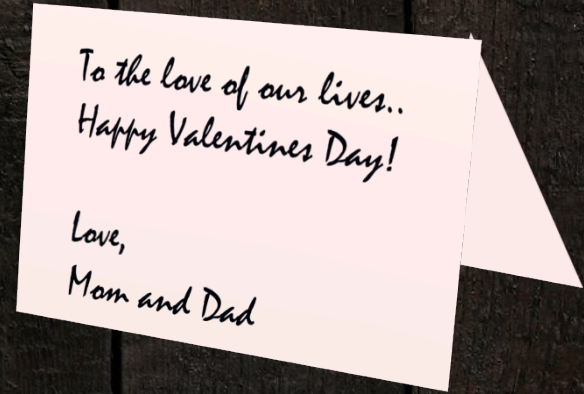 To the love of our lives..
Happy Valentines Day!
Love,
Mom and Dad